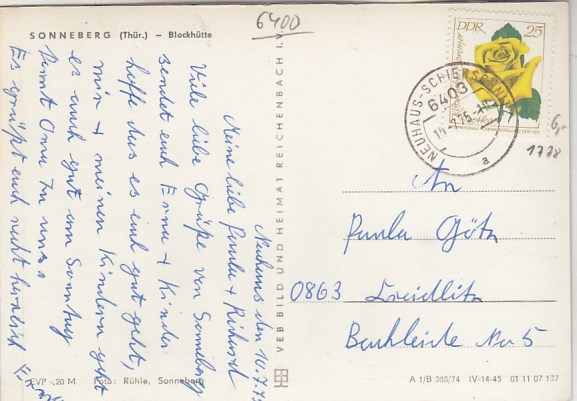 SONNEBERG (Thür.) — Blockhütte
6400
Neuhaus den 10.7.75
Meine liebe Paula + Richard
Viele liebe Grüße von Sonneberg
sendet euch Erna + Kinder
hoffe das es euch gut geht,
mir + meinen Kindern geht
es auch gut am Sonntag
kommt Oma zu uns.
Es grüßt euch recht herzlich Erna
VEB BILD UND HEIMAT REICHENBACH I. V.
DDR 25
NEUHAUS-SCHIERSCHNITZ
6403
a
6,-
1778
An
Paula Götz
0863
Bachleite No 5
EVP -,20 M Foto: Rühle, Sonneberg
A 1/B 388/74 IV-14-45 01 11 07 137